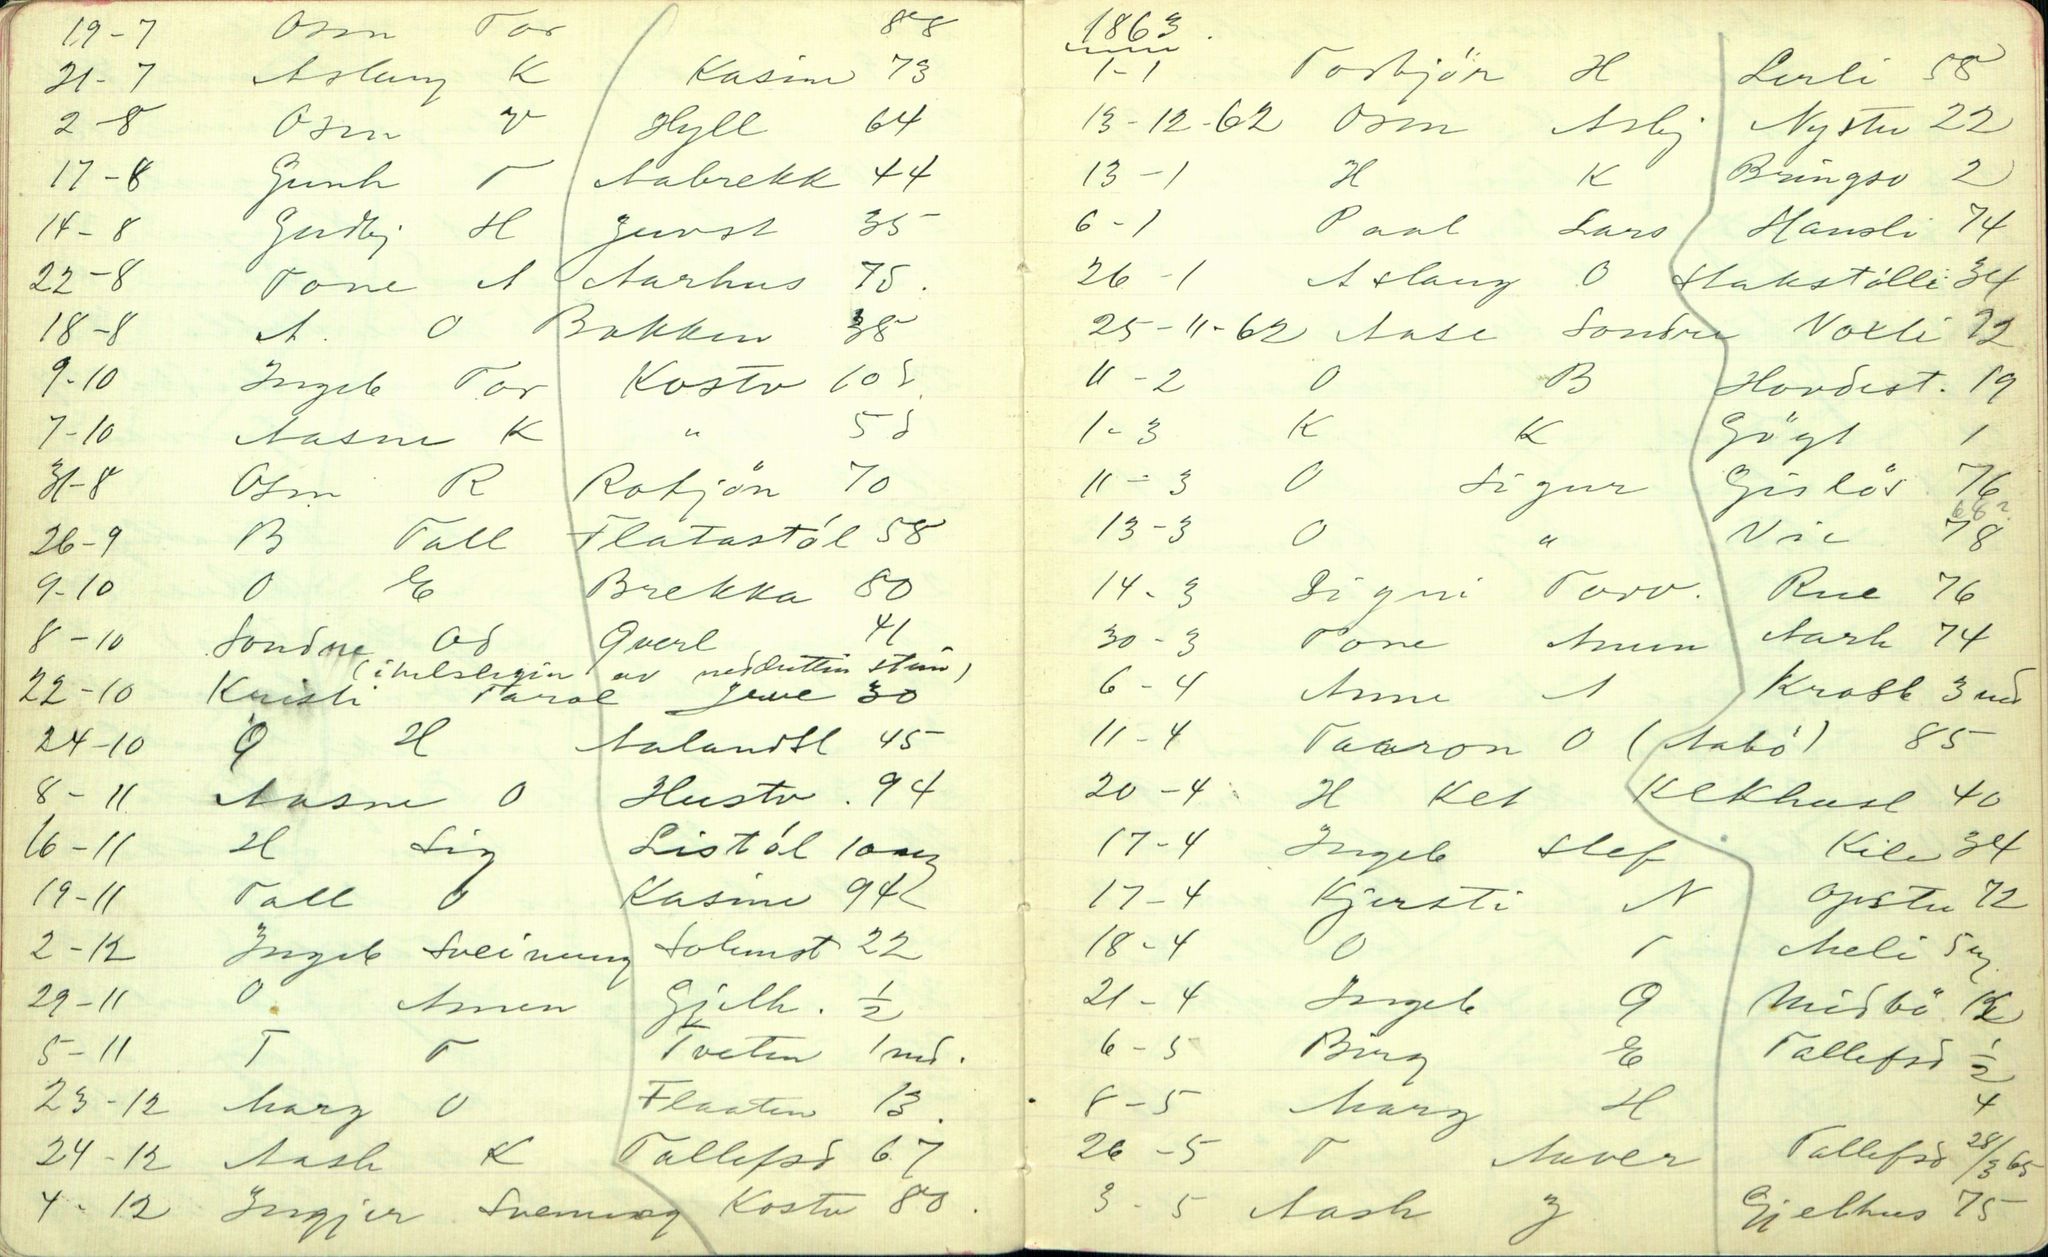 19-7 Osm Tor 88
21-7 Aslaug K Kasin 73
2-8 Osm V Hyll 64
17-8 Gunh T Aabrekk 44
14-8 Gudbj H Juvst 35
22-8 Tone A Aarhus 75.
18-8 A. O Bakken 38
9-10 Ingeb Tor Kostv 10 d.
7-10 Aasne K " 5 d
31-8 Osm R Rotjön 70
26-9 B Tall Flatastól 58
9-10 O E Brekka 80
8-10 Sondre Od Qverl 41
(ihelslegin av nedduttin stein)
22-10 Kristi Taral Juve 30
24-10 Q H Aalandsl 45
8-11 Aasne O Hustv. 94
16-11 H Sig Listól 10 ug
19-11 Tall O Kasin 94
2-12 Ingeb Sveinung Solemst 22
29-11 O Amun Gjelh. ½
5-11 T T Tveten 1 md.
23-12 Marg O Flaaten 13.
24-12 Aash K Tallefsd 67
4-12 Ingjer Svenung Kostv 80.
1863.
1-1 Torbjör H Lerli 58
13-12-62 Osm Asbj Nystu 22
13-1 H K Bringso 2
6-1 Paal Lars Hansli 74
26-1 Aslaug O Stakstölli 34
25-11-62 Aase Sondre Voxli 72
11-2 O B Hovdest. 19
1-3 K K Göyt 1
11-3 O Sigur Gislös 76
68?
13-3 O " Vie 78
14-3 Signi Torv. Rue 76
30-3 Tone Amun Aarh 74
6-4 Anne A Krossl 3 md
11-4 Taaron O (Aabö) 85
20-4 H Ket Kekhusl 40
17-4 Ingeb Stef Kile 34
17-4 Kjersti N Opstu 72
18-4 O T Meli 5 ug.
21-4 Ingeb Q Midbö
6-5 Birg E Tallefsd ½
8-5 Marg H 4
26-5 T Aaver Tallefsd 28/3 65
3-5 Aash J Gjelhus 75